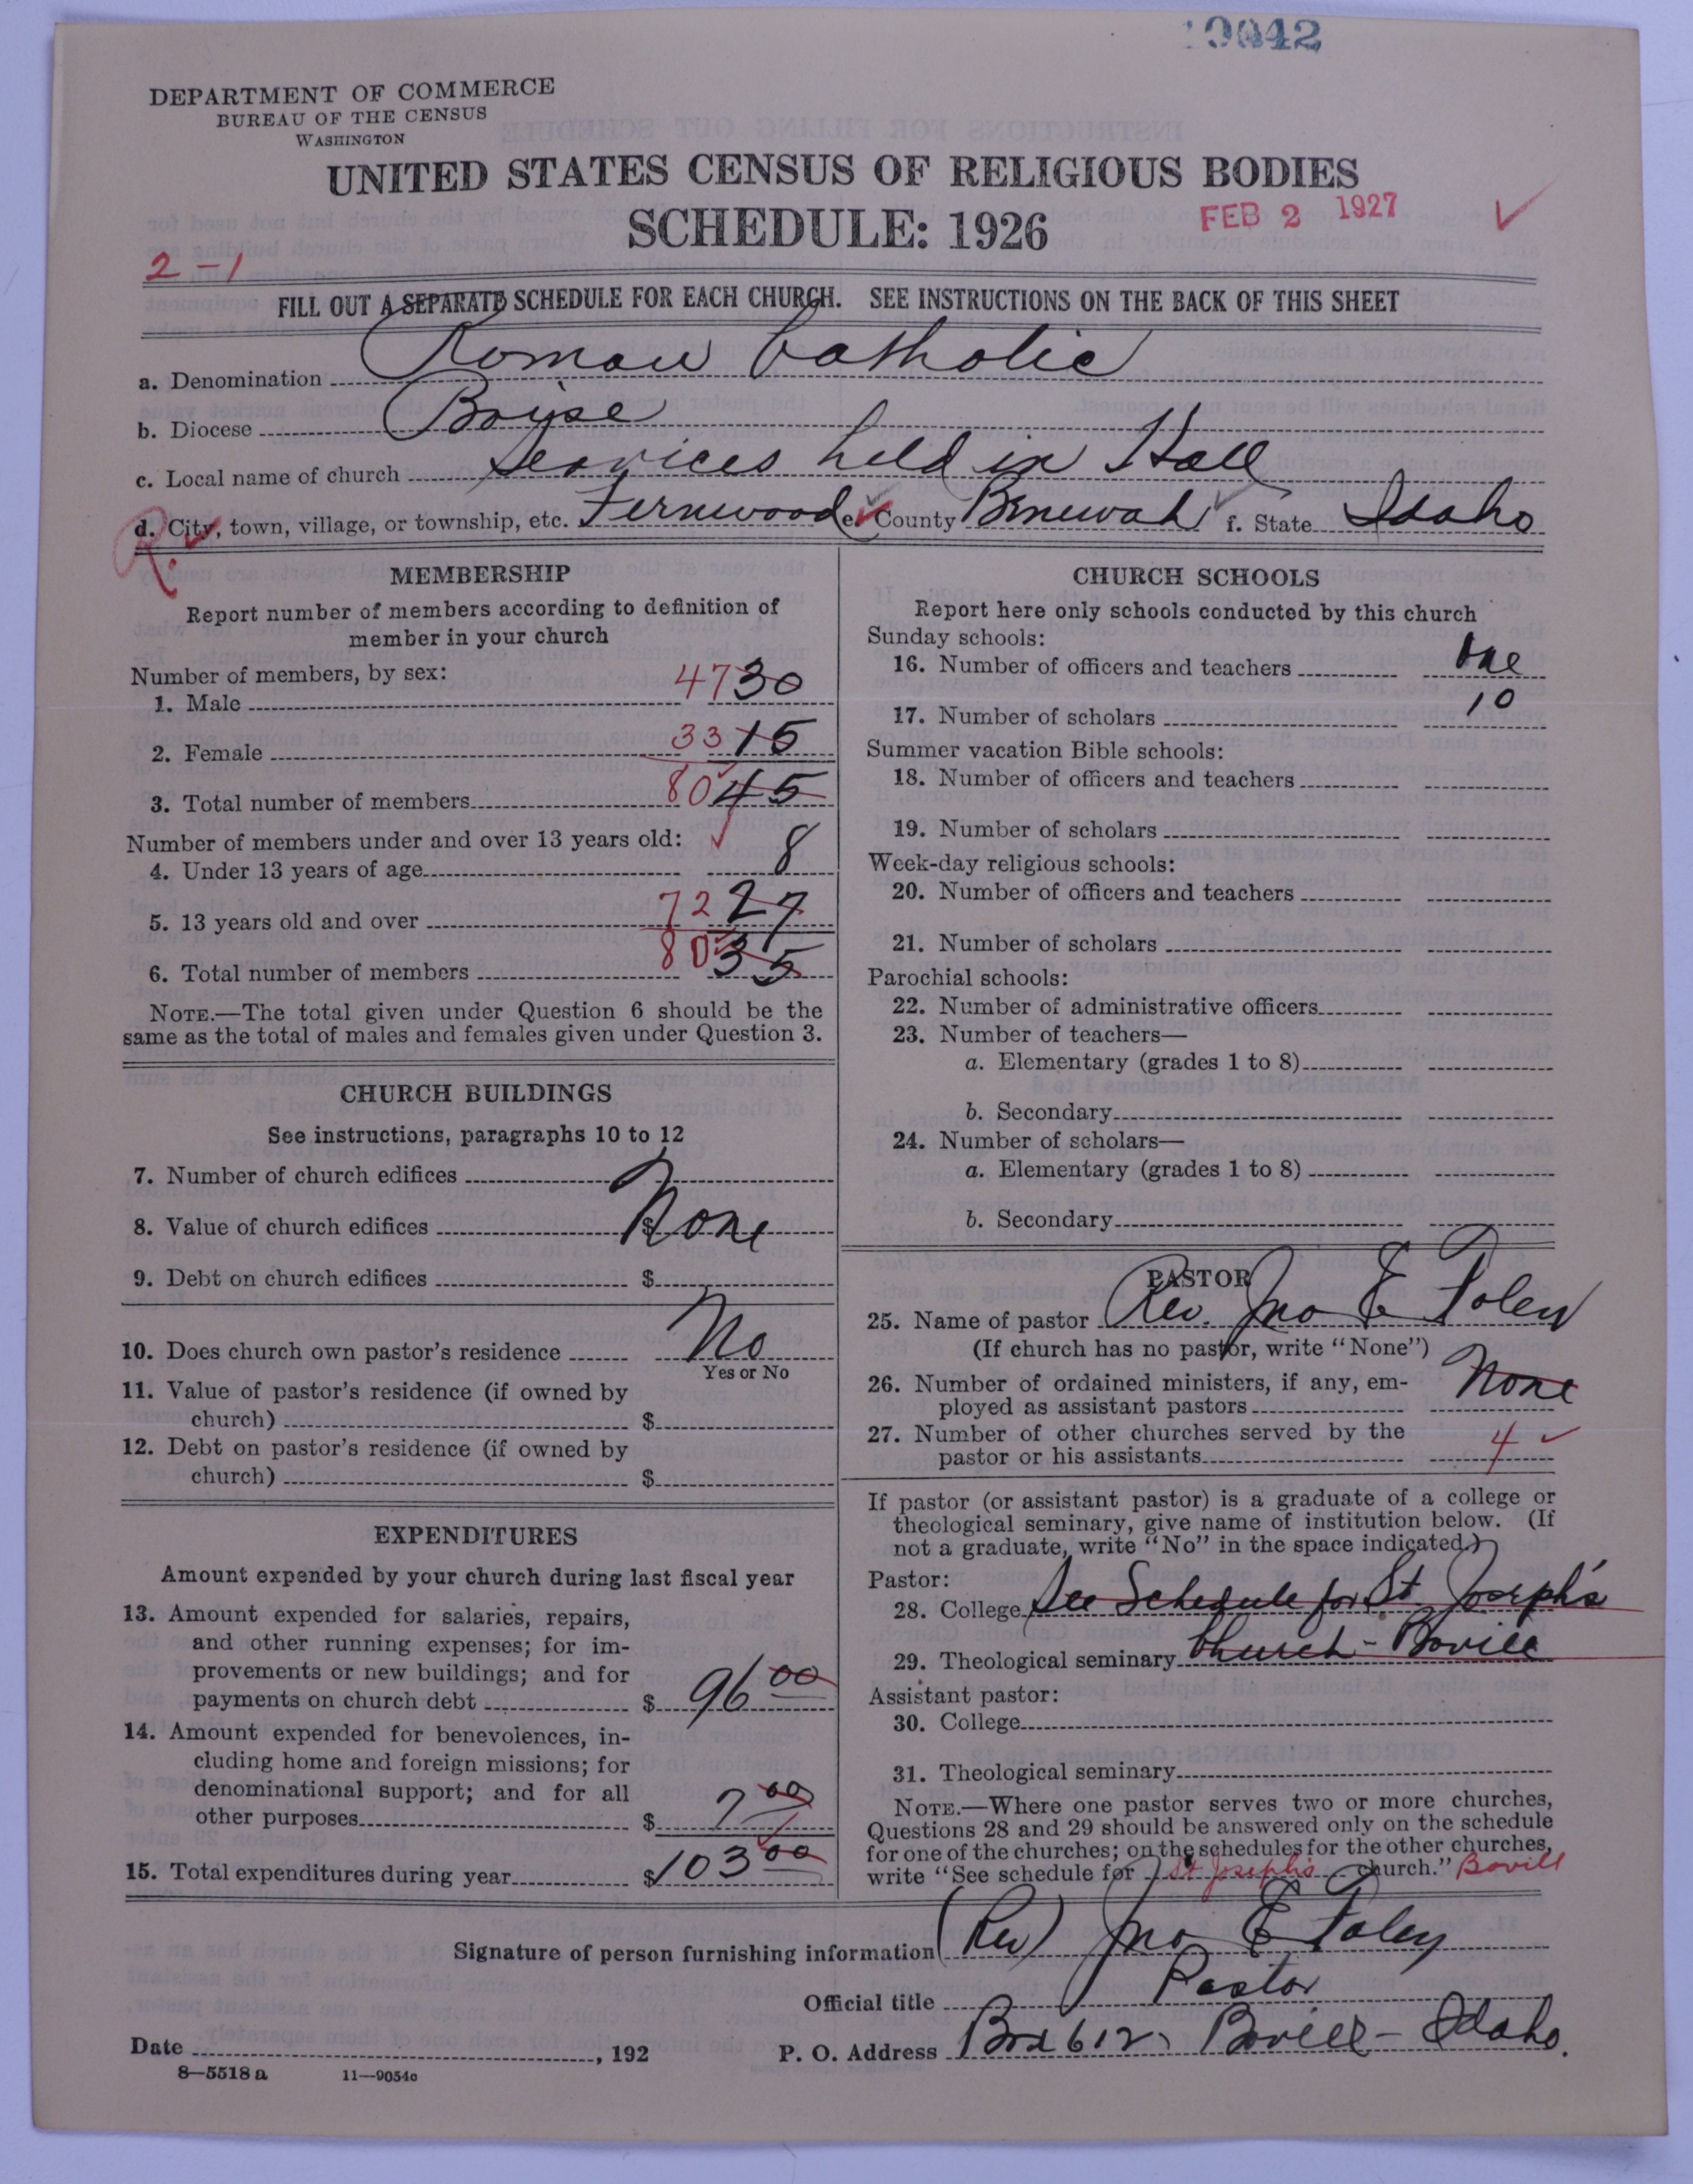 19042
DEPARTMENT OF COMMERCE
BUREAU OF THE CENSUS
WASHINGTON
UNITED STATES CENSUS OF RELIGIOUS BODIES
SCHEDULE: 1926
FEB 2 1927
2-1
FILL OUT A SEPARATE SCHEDULE FOR EACH CHURCH. SEE INSTRUCTIONS ON THE BACK OF THIS SHEET
a. Denomination Roman Catholic
b. Diocese Boise
c. Local name of church Services held in Hall
R. d. City, town, village, or township, etc. Fernwood e. County Benewah f. State Idaho
MEMBERSHIP
Report number of members according to definition of
member in your church
Number of members, by sex:
1. Male 47 30
2. Female 33 15
3. Total number of members 80 45
Number of members under and over 13 years old:
4. Under 13 years of age 8
5. 13 years old and over 72 27
6. Total number of members 80 35
NOTE.—The total given under Question 6 should be the
same as the total of males and females given under Question 3.
CHURCH BUILDINGS
See instructions, paragraphs 10 to 12
7. Number of church edifices
8. Value of church edifices $ None
9. Debt on church edifices $
10. Does church own pastor's residence No
Yes or No
11. Value of pastor's residence (if owned by
church) $
12. Debt on pastor's residence (if owned by
church) $
EXPENDITURES
Amount expended by your church during last fiscal year
13. Amount expended for salaries, repairs,
and other running expenses; for im-
provements or new buildings; and for
payments on church debt $ 96 00
14. Amount expended for benevolences, in-
cluding home and foreign missions; for
denominational support; and for all
other purposes $ 7 00
15. Total expenditures during year $ 103 00
CHURCH SCHOOLS
Report here only schools conducted by this church
Sunday schools:
16. Number of officers and teachers One
17. Number of scholars 10
Summer vacation Bible schools:
18. Number of officers and teachers
19. Number of scholars
Week-day religious schools:
20. Number of officers and teachers
21. Number of scholars
Parochial schools:
22. Number of administrative officers
23. Number of teachers—
a. Elementary (grades 1 to 8)
b. Secondary
24. Number of scholars—
a. Elementary (grades 1 to 8)
b. Secondary
PASTOR
25. Name of pastor Rev. Jno E Foley
(If church has no pastor, write "None")
26. Number of ordained ministers, if any, em-
ployed as assistant pastors None
27. Number of other churches served by the
pastor or his assistants 4
If pastor (or assistant pastor) is a graduate of a college or
theological seminary, give name of institution below. (If
not a graduate, write "No" in the space indicated.)
Pastor:
28. College See Schedule for St Joseph's
29. Theological seminary Church - Bovill
Assistant pastor:
30. College
31. Theological seminary
NOTE.—Where one pastor serves two or more churches,
Questions 28 and 29 should be answered only on the schedule
for one of the churches; on the schedules for the other churches,
write "See schedule for St Joseph's church." Bovill
Signature of person furnishing information (Rev) Jno E Foley
Official title Pastor
Date , 192 P. O. Address Box 612, Bovill - Idaho.
8—5518 a 11—9054c